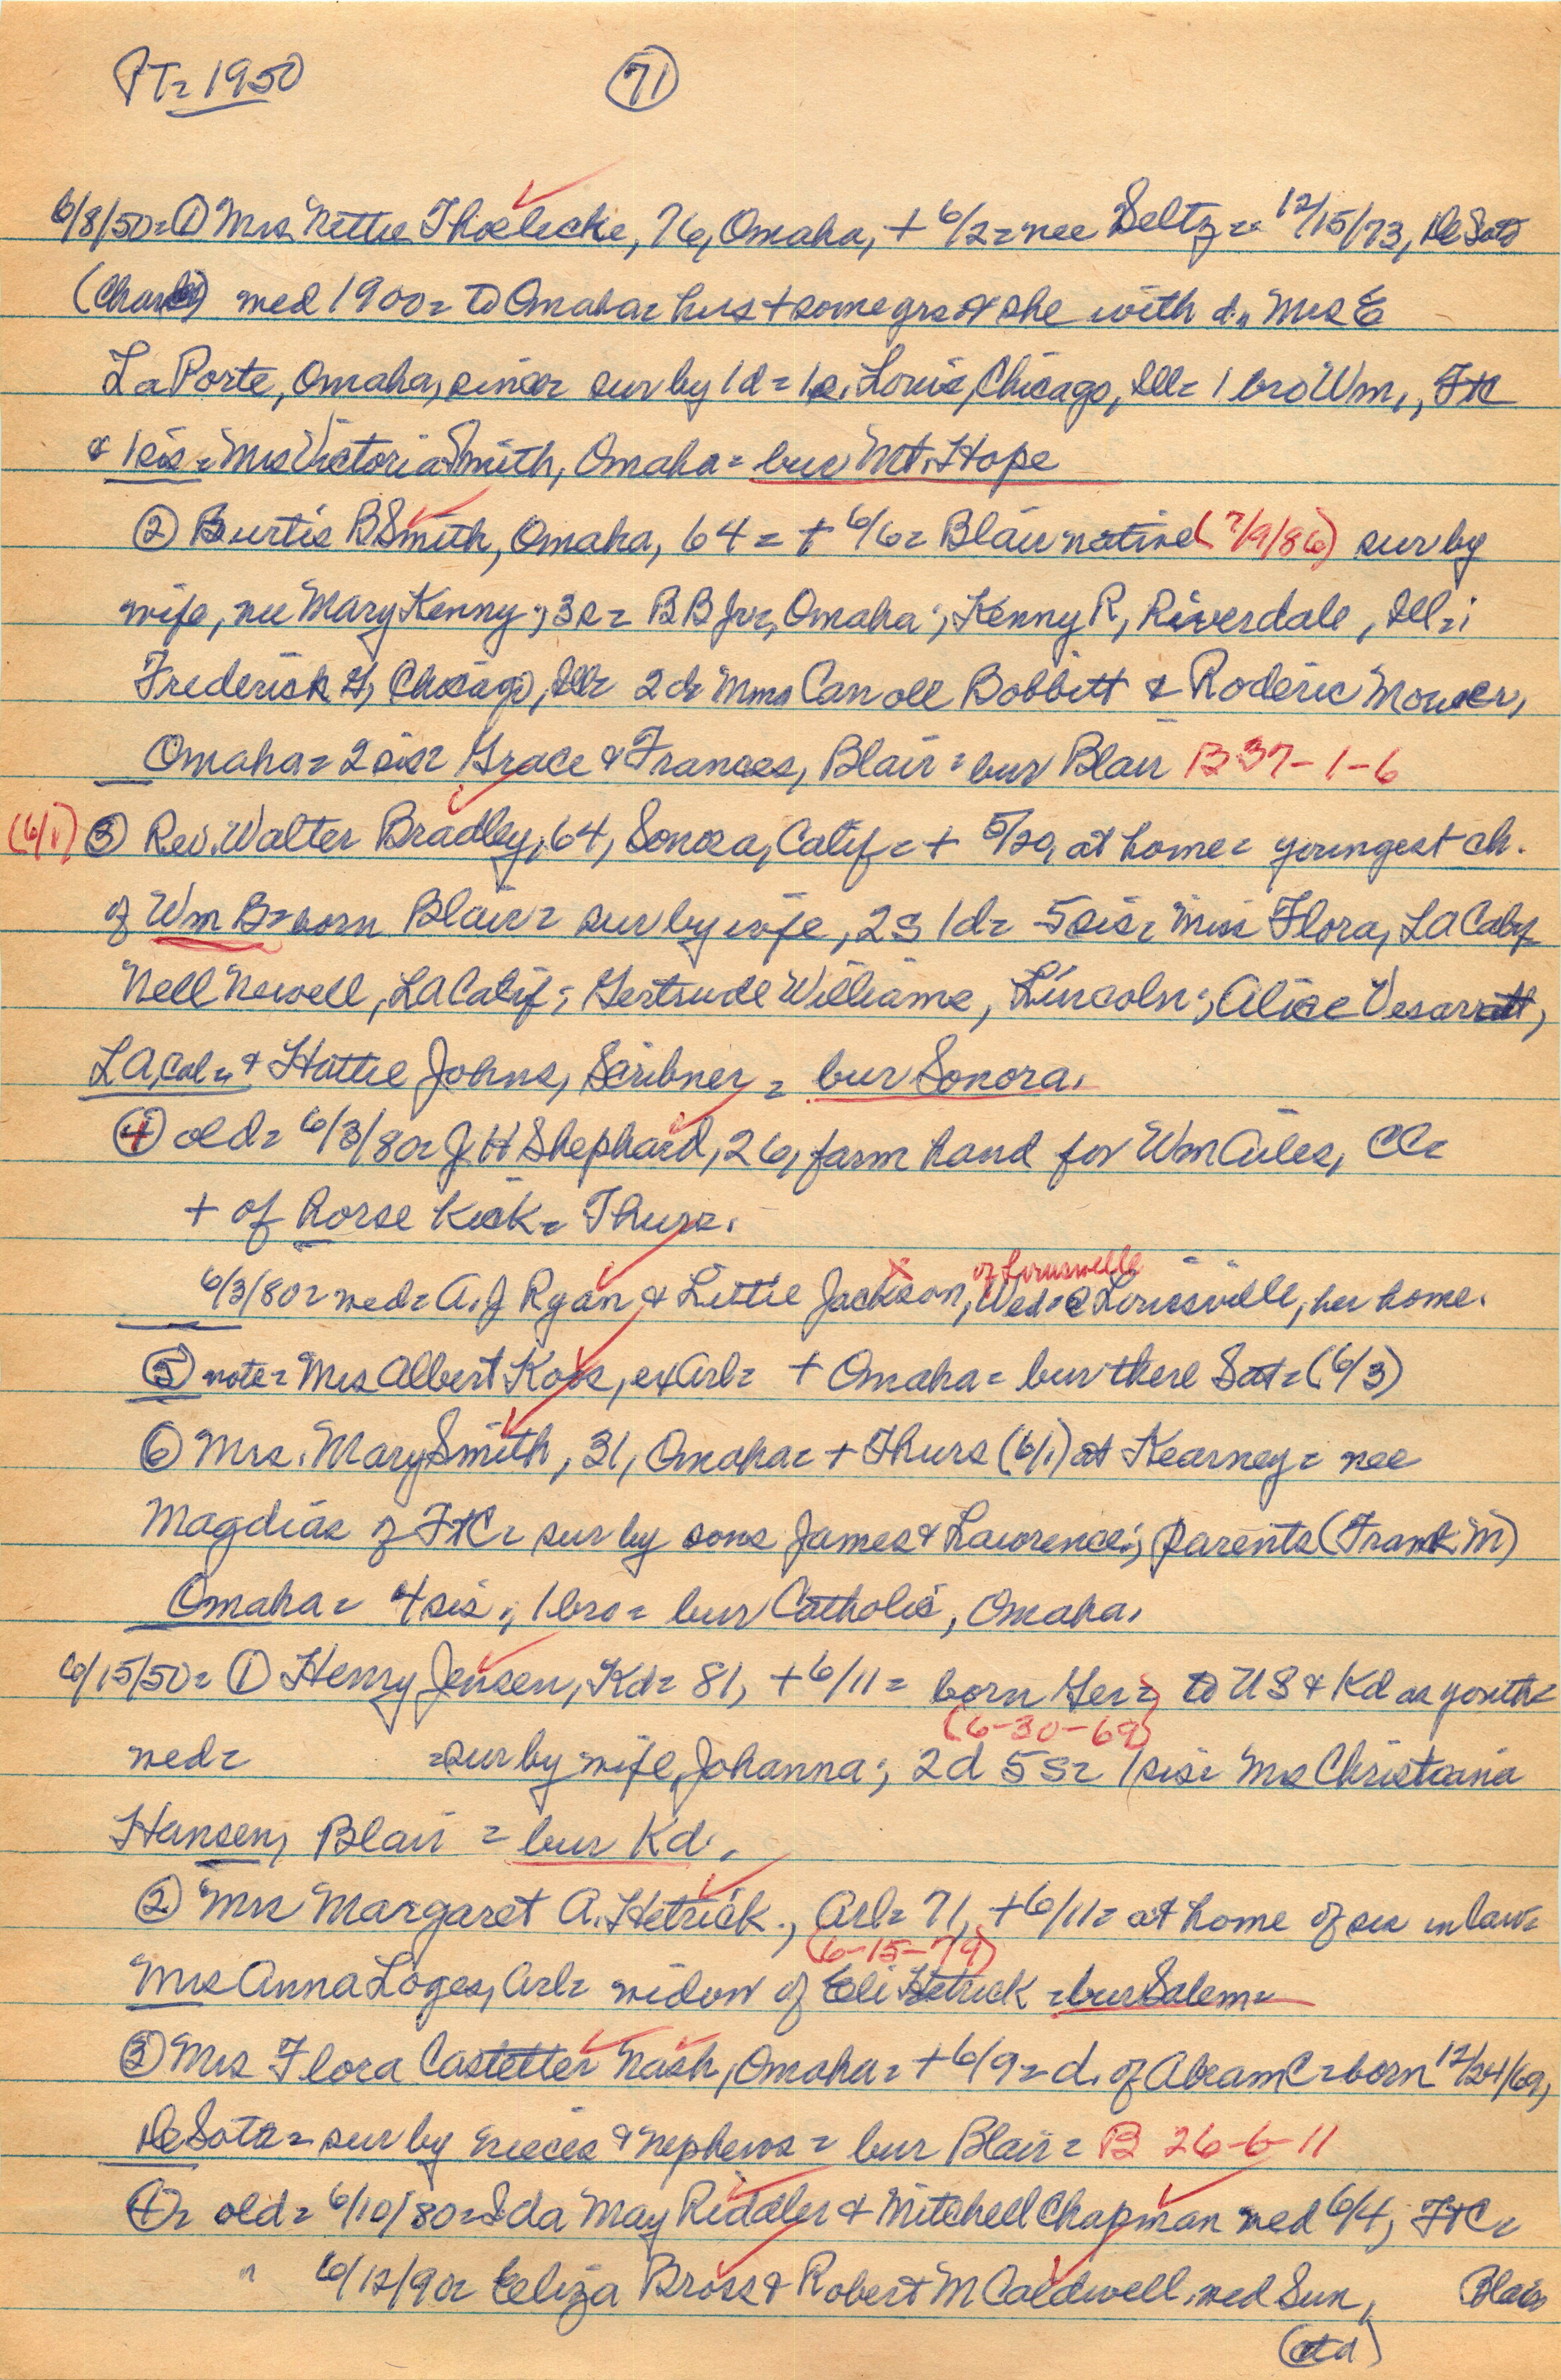 PT= 1950 (71)
6/8/50= ① Mrs Nettie Thoelecke, 76, Omaha, + 6/2= nee Seltz= 12/15/73, De Soto
(Charles) wed 1900= to Omaha= hus + some yrs & she with d., Mrs E
LaPorte, Omaha, since= sur by 1d= 1s. Louis, Chicago, Ill= 1 bro Wm., FtC
& 1 sis= Mrs Victoria Smith, Omaha= bur Mt. Hope
② Burtis B Smith, Omaha, 64= + 6/6= Blair native (7/9/86) sur by
wife, nee Mary Kenny; 3s= BB Jr=, Omaha; Kenny R, Riverdale, Ill=;
Frederick H, Chicago, Ill= 2d= Mms Carroll Bobbitt & Roderic Mower,
Omaha= 2 sis= Grace & Frances, Blair= bur Blair B 37-1-6
(6/1) ③ Rev. Walter Bradley, 64, Sonora, Calif= + 5/29, at home= youngest ch.
of Wm B= born Blair= sur by wife, 2s 1d= 5 sis= Miss Flora, LA Calif
Nell Newell, LA Calif; Gertrude Williams, Lincoln; Alice Vesarratt,
LA, Cal= & Hattie Johns, Scribner= bur Sonora.
④ old= 6/3/80= J H Shephard, 26, farm hand for Wm Ailes, CC=
+ of horse kick= Thurs.
6/3/80= wed= A. J Ryan & Lettie Jackson, of Louisville Wed= @ Louisville, her home.
⑤ note= Mrs Albert Koos, ex Arl= + Omaha= bur there Sat= (6/3)
⑥ Mrs. Mary Smith, 31, Omaha= + Thurs (6/1) at Kearney= nee
Magdias of FtC= sur by sons James & Lawrence; parents (Frank M)
Omaha= 4 sis; 1 bro= bur Catholic, Omaha.
6/15/50= ① Henry Jensen, Kd= 81, + 6/11= born Ger=, to US & Kd as youth=
(6-30-69)
wed= =sur by wife, Johanna; 2d 5s= 1 sis= Mrs Christiania
Hansen, Blair= bur Kd.
② Mrs Margaret A. Hetrick, Arl= 71, + 6/11= at home of sis in law=
(6-15-79)
Mrs Anna Loges, Arl= widow of Eli Hetrick= bur Salem=
③ Mrs Flora Castetter Nash, Omaha= + 6/9= d. of Abram C= born 12/24/69,
DeSoto= sur by nieces & nephews= bur Blair= B 26-6-11
④= old= 6/10/80= Ida May Riddler & Mitchell Chapman wed 6/4, FtC=
" 6/12/90= Eliza Bross & Robert M Caldwell, wed Sun, Blair
(ctd)